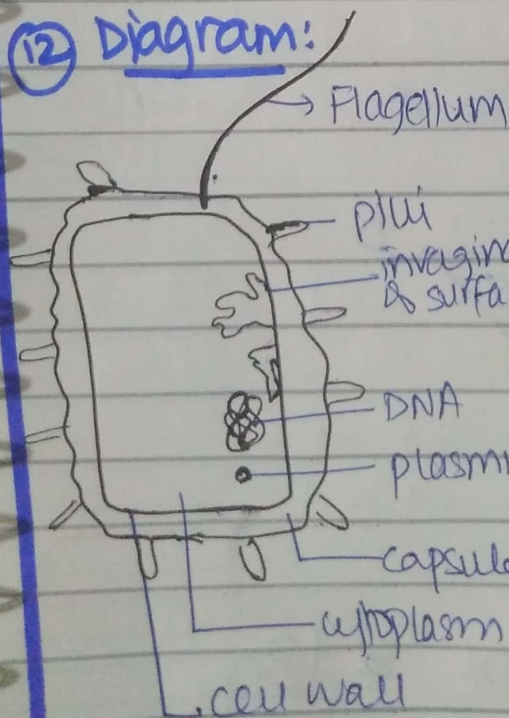 12 Diagram:
Flagellum
pili
invagin
& surfa
DNA
plasmi
capsule
cytoplasm
cell wall